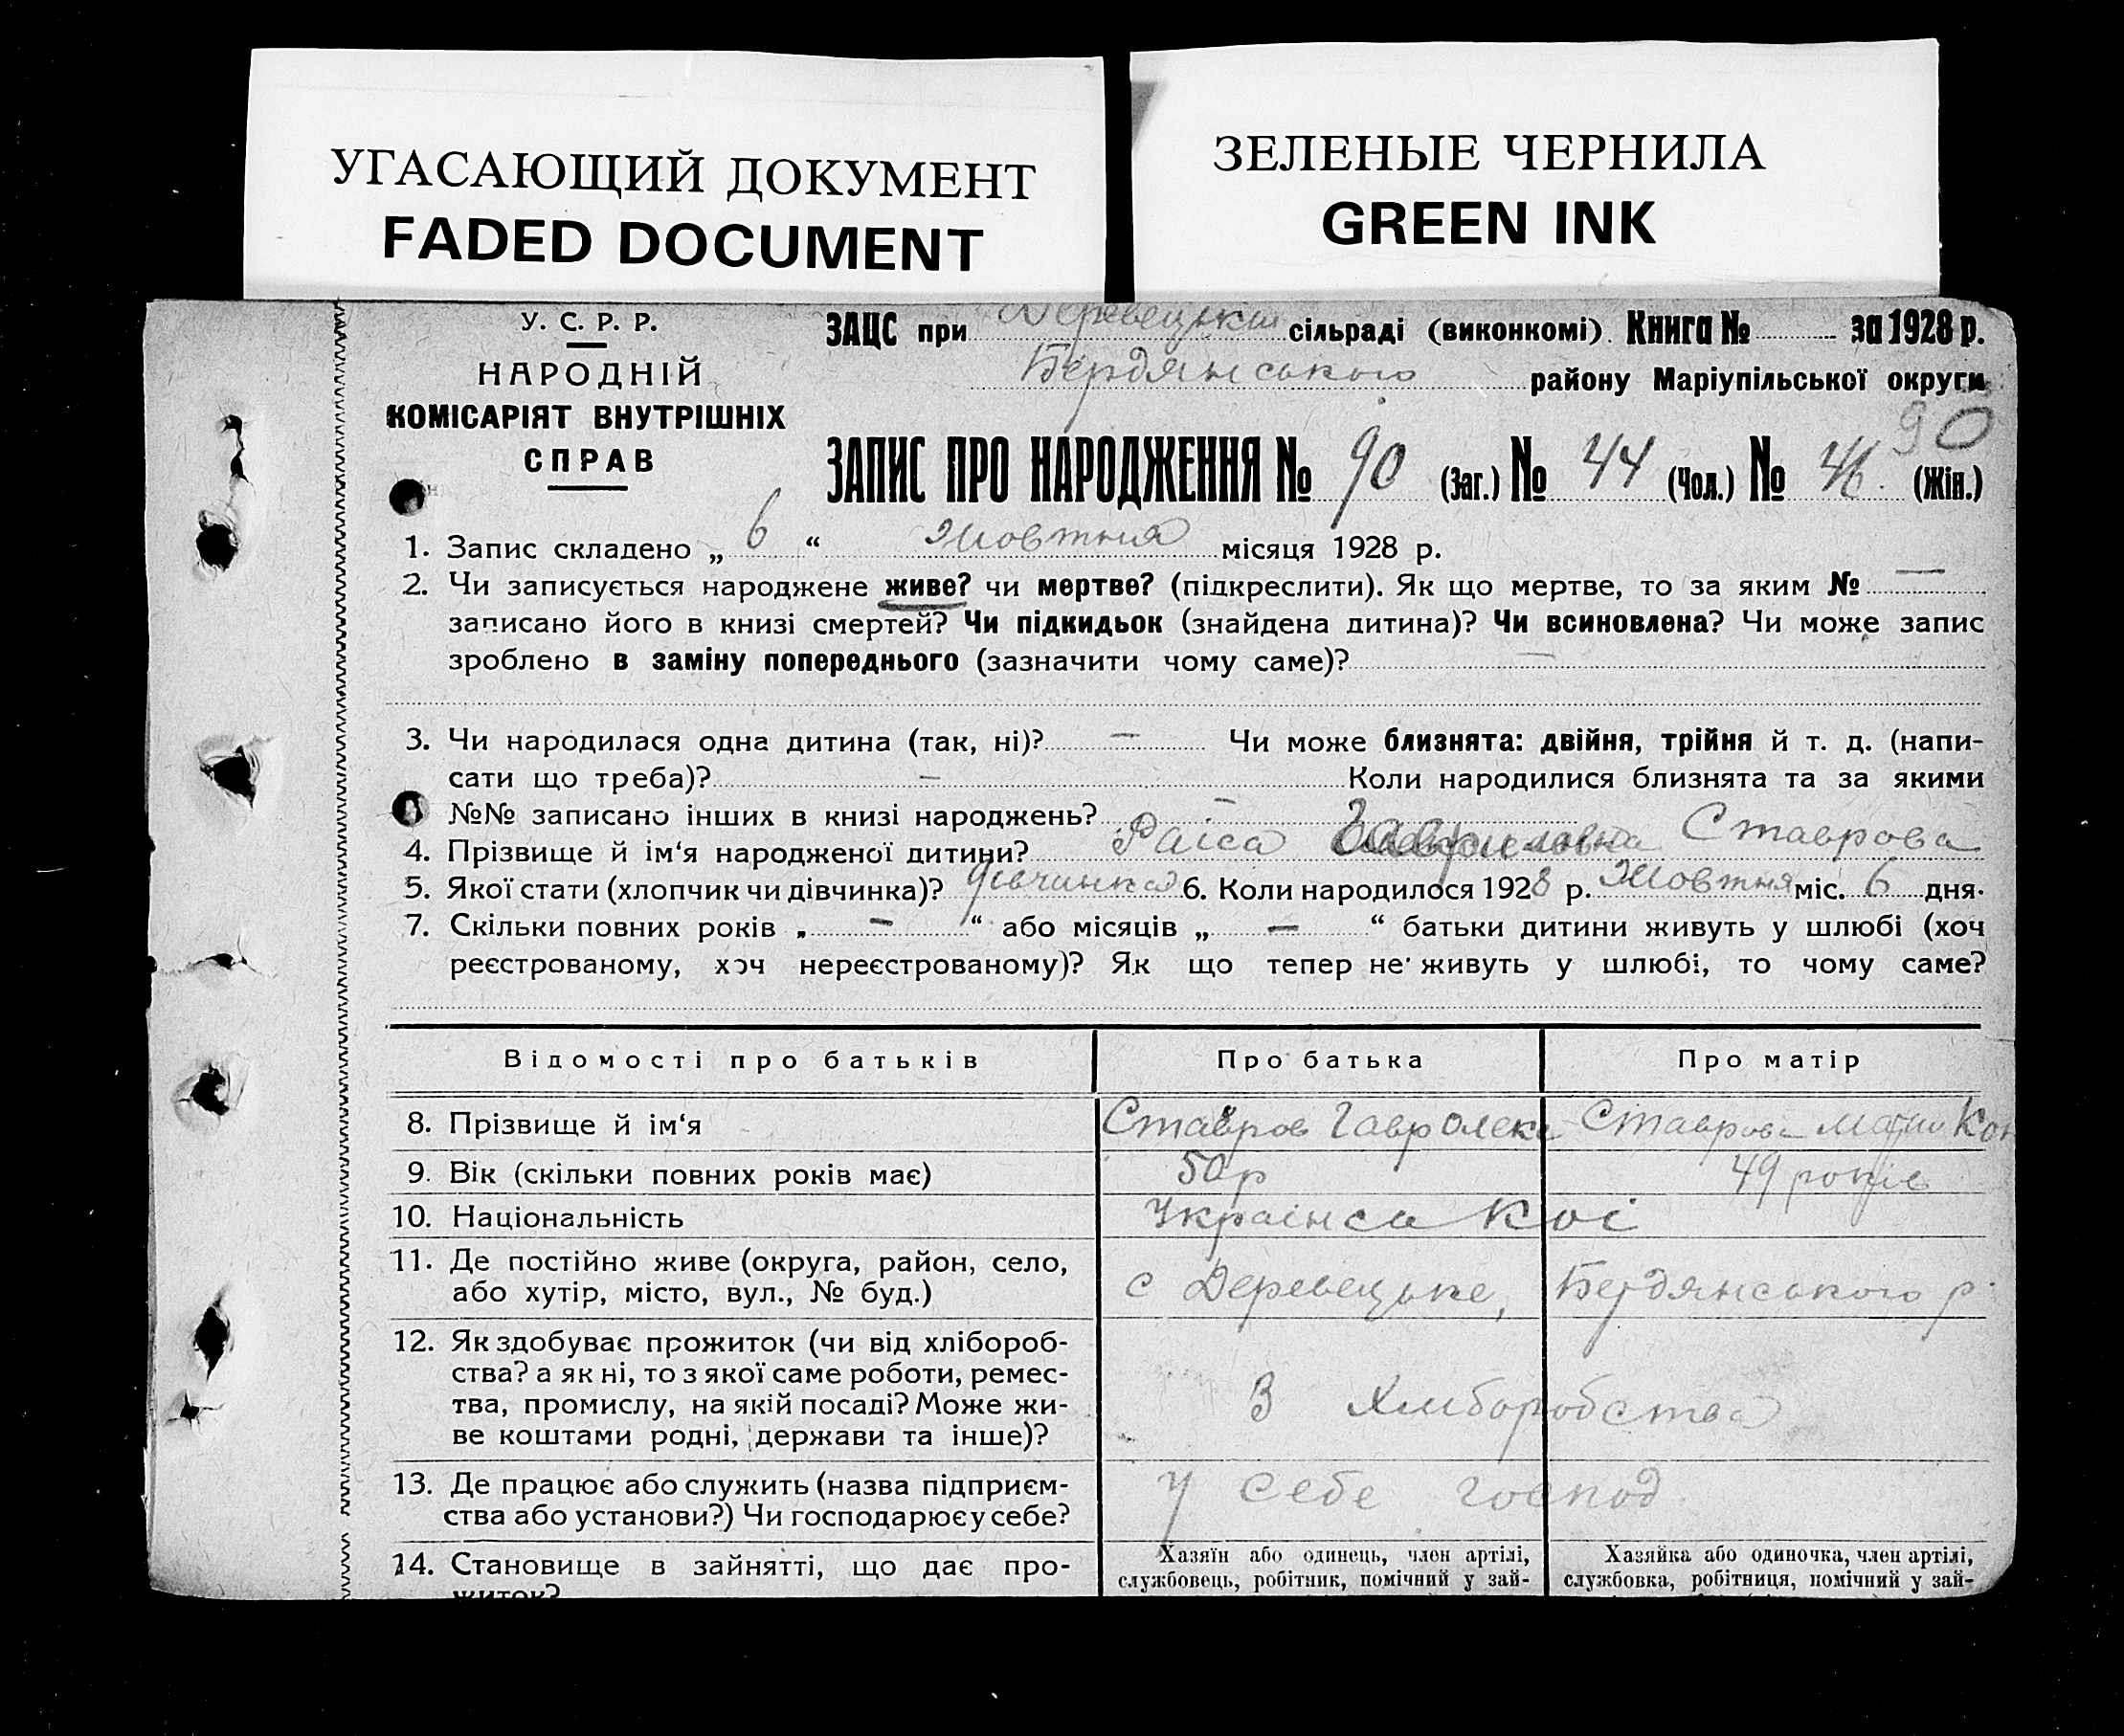 УГАСАЮЩИЙ ДОКУМЕНТ
FADED DOCUMENT
ЗЕЛЕНЫЕ ЧЕРНИЛА
GREEN INK
У. С. Р. Р.
НАРОДНІЙ
КОМІСАРІЯТ ВНУТРІШНІХ
СПРАВ
ЗАЦС при Деревецькій сільраді (виконкомі). Книга № за 1928 р.
Бердянського району Маріупільської округи
90
ЗАПИС ПРО НАРОДЖЕННЯ № 90 (Заг.) № 44 (Чол.) № 46. (Жін.)
1. Запис складено „ 6 “ Жовтня місяця 1928 р.
2. Чи записується народжене живе? чи мертве? (підкреслити). Як що мертве, то за яким № —
записано його в книзі смертей? Чи підкидьок (знайдена дитина)? Чи всиновлена? Чи може запис
зроблено в заміну попереднього (зазначити чому саме)? —
3. Чи народилася одна дитина (так, ні)? — Чи може близнята: двійня, трійня й т. д. (напи-
сати що треба)? — Коли народилися близнята та за якими
№№ записано інших в книзі народжень? —
4. Прізвище й ім‘я народженої дитини? Раіса Гавриловна Ставрова
5. Якої стати (хлопчик чи дівчинка)? дівчинка 6. Коли народилося 1928 р. Жовтня міс. 6 дня.
7. Скільки повних років „ — “ або місяців „ — “ батьки дитини живуть у шлюбі (хоч
реєстрованому, хоч нереєстрованому)? Як що тепер не живуть у шлюбі, то чому саме?
Відомості про батьків Про батька Про матір
8. Прізвище й ім‘я Ставров Гавр Олекс Ставрова Кон
9. Вік (скільки повних років має) 50 р 49 років
10. Національність Українські
11. Де постійно живе (округа, район, село, с Деревецьке, Бердянського р.
або хутір, місто, вул., № буд.)
12. Як здобуває прожиток (чи від хлібороб-
ства? а як ні, то з якої саме роботи, ремес-
тва, промислу, на якій посаді? Може жи- З Хліборобства
ве коштами родні, держави та інше)?
13. Де працює або служить (назва підприєм- У себе господ
ства або установи?) Чи господарює у себе?
14. Становище в зайнятті, що дає про- Хазяїн або одинець, член артілі, Хазяйка або одиночка, член артілі,
житок? службовець, робітник, помічний у зай- службовка, робітниця, помічний у зай-